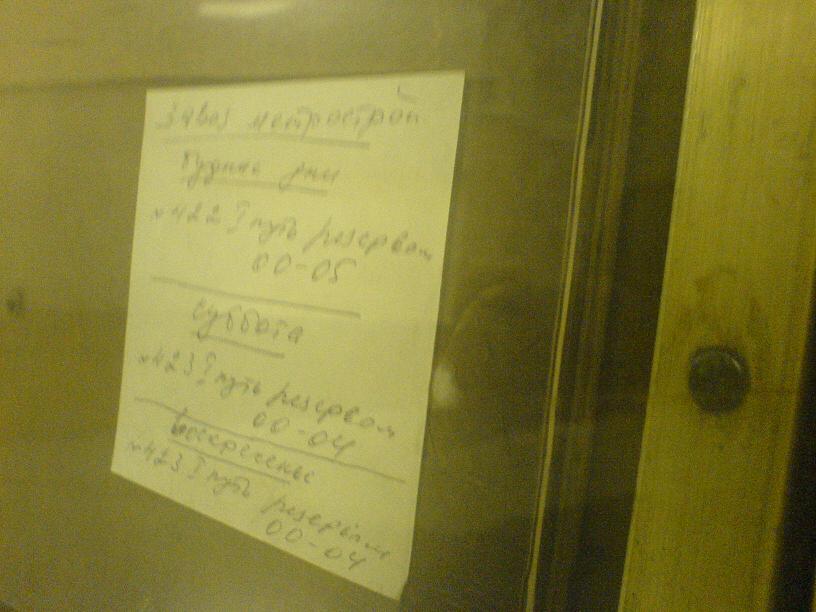 Завоз метрострой
Будние дни
№422 I путь резервом
00-05
суббота
№423 I путь резервом
00-04
Воскресенье
№423 I путь резервом
00-04